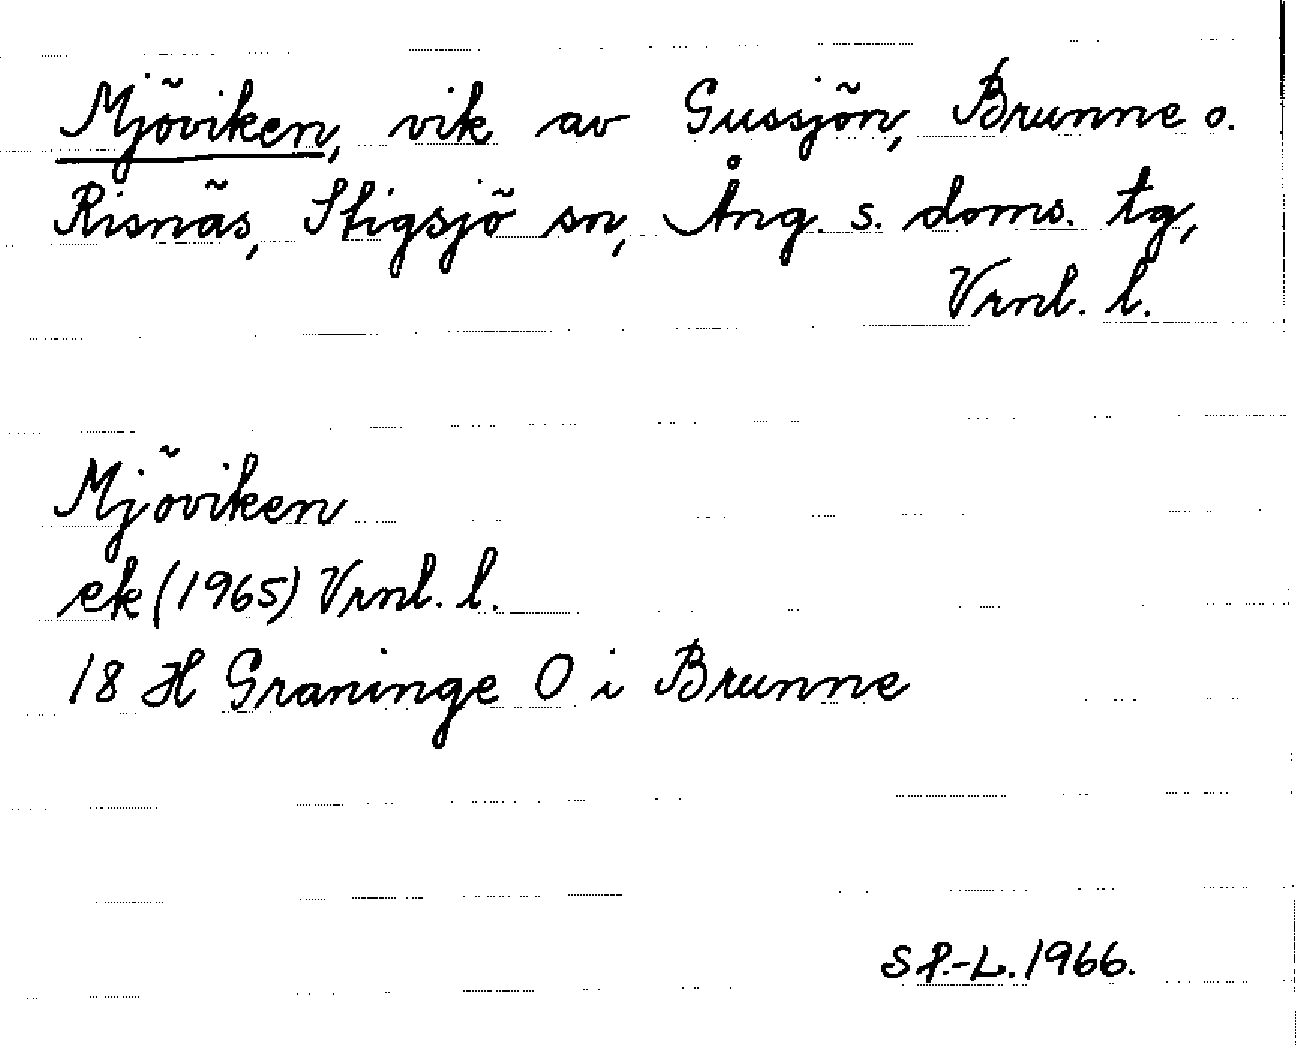 Mjöviken, vik av Gussjön, Brunne o.
Risnäs, Stigsjö sn, Ång. s. doms. tg,
Vrnl. l.
Mjöviken
ek (1965) Vrnl. l.
18 H Graninge O i Brunne
S P.-L. 1966.